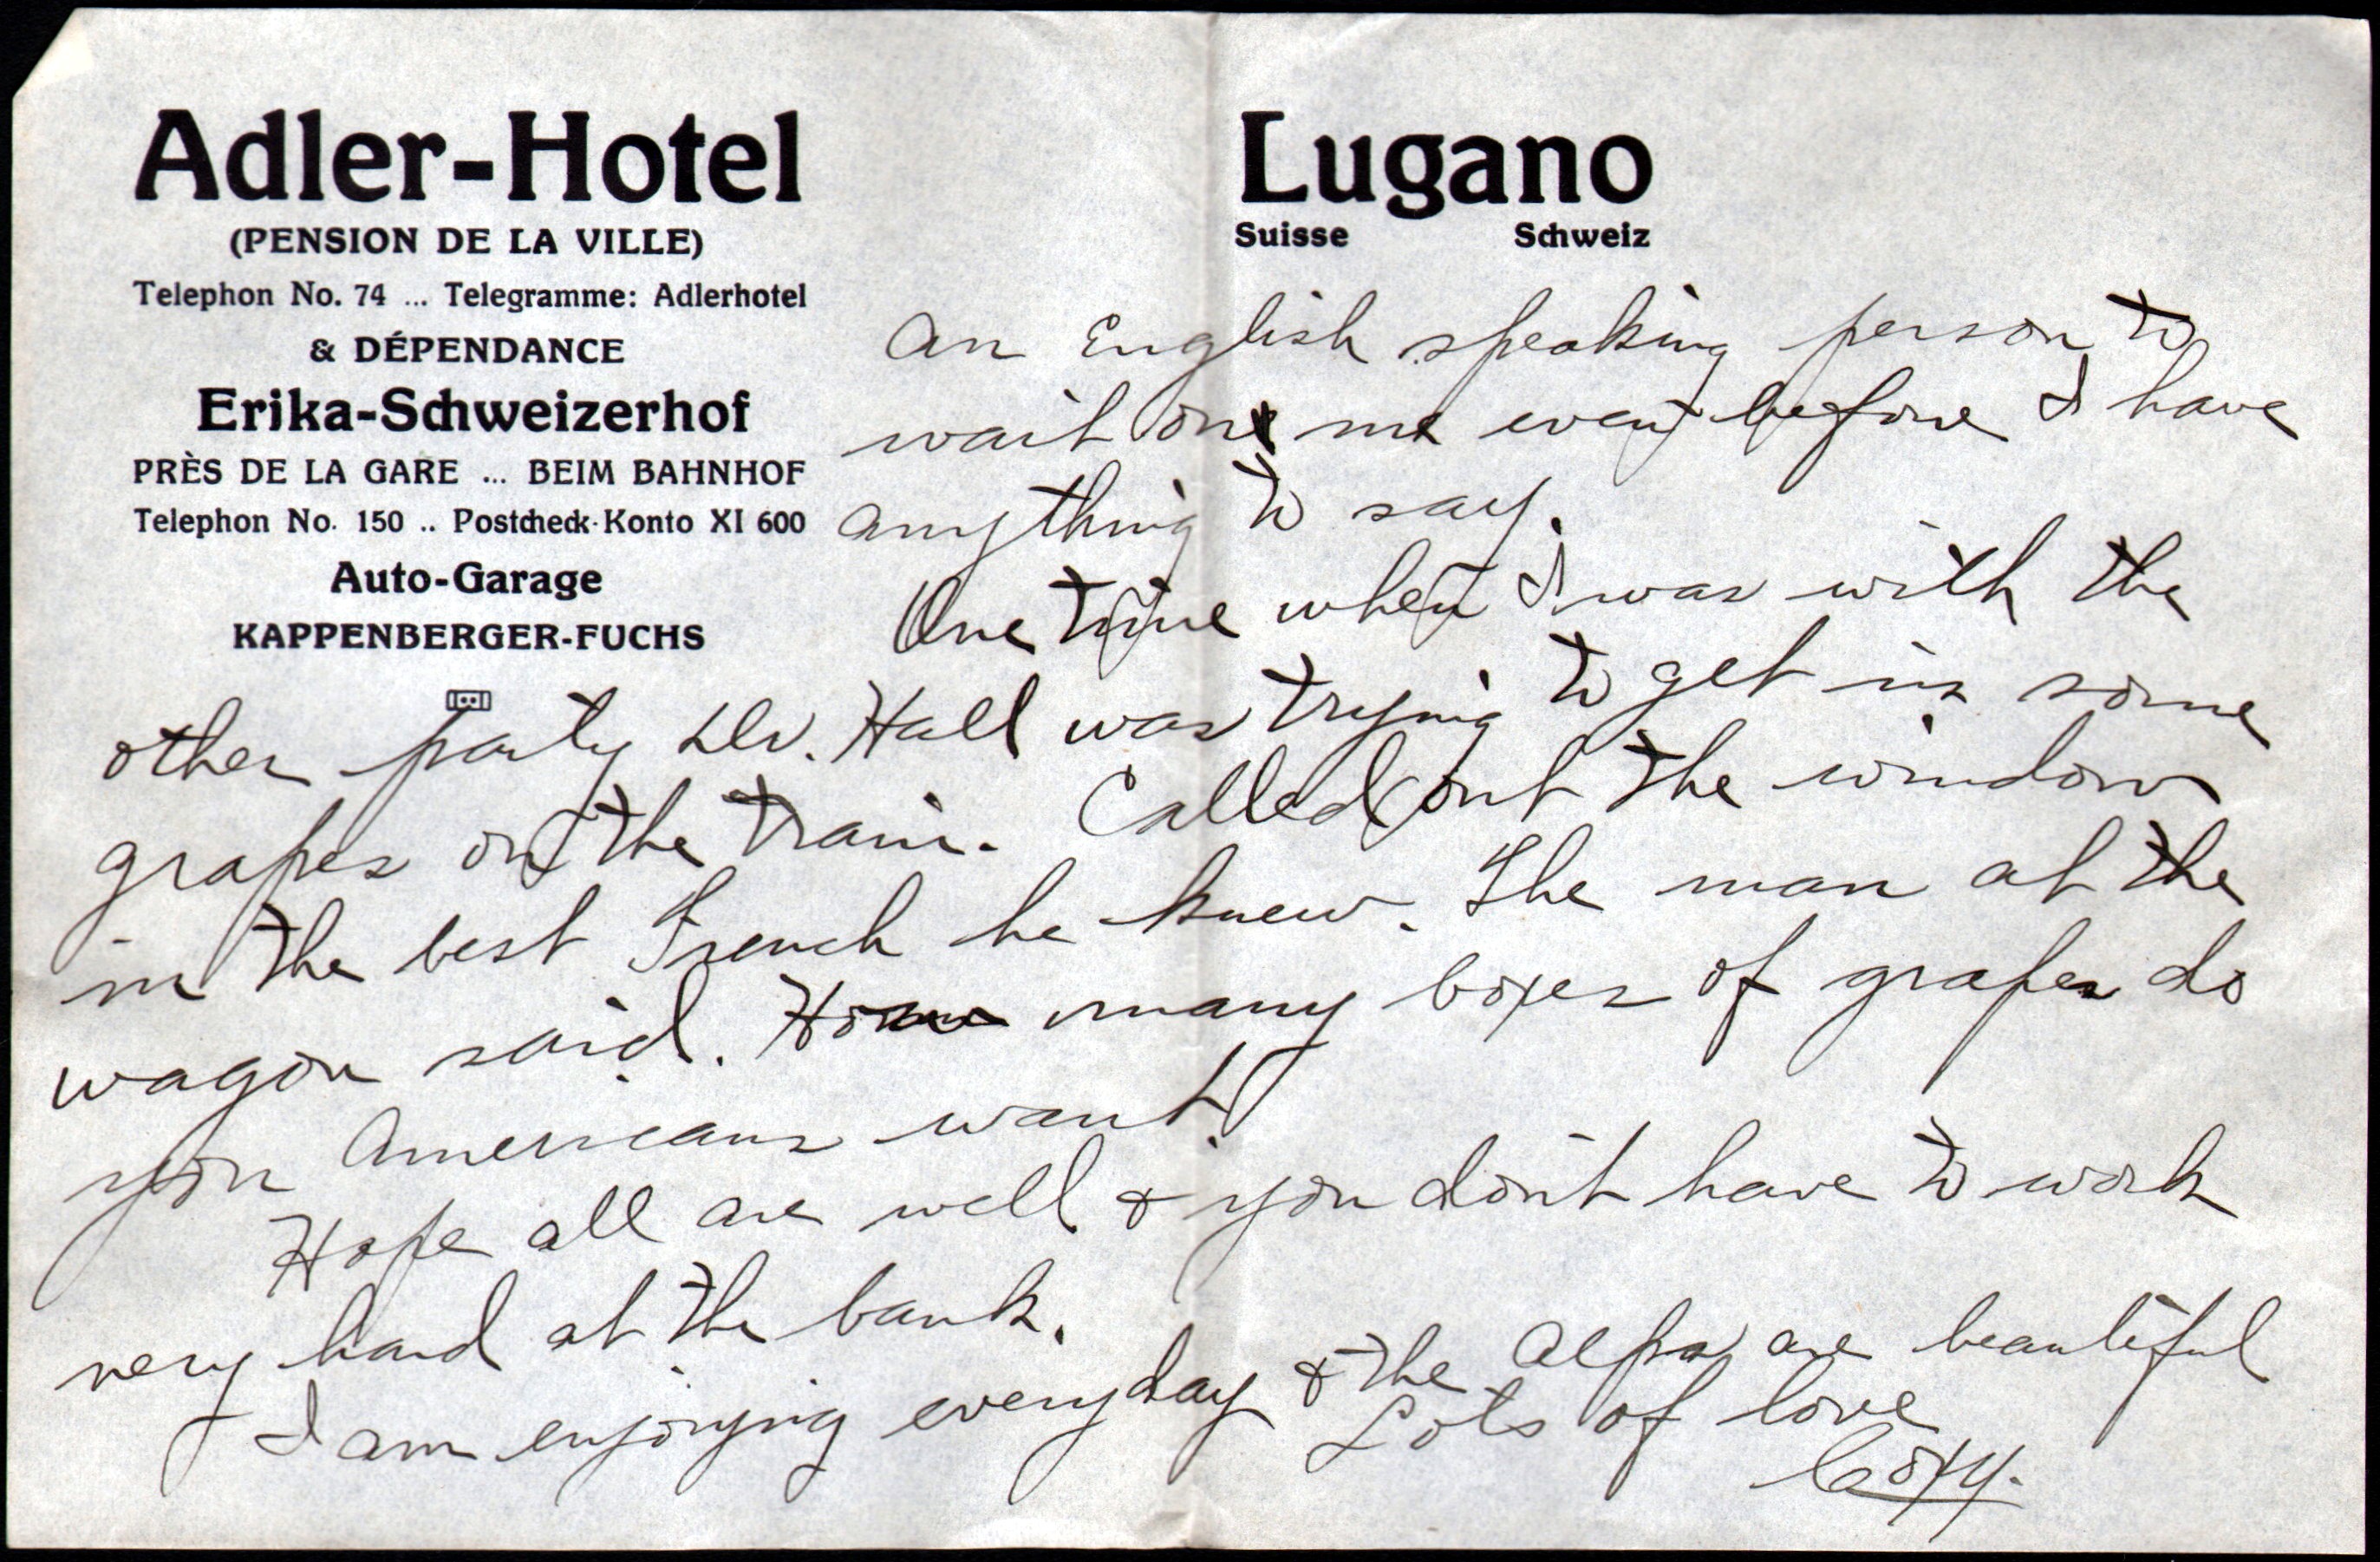 Adler-Hotel
(PENSION DE LA VILLE)
Telephon No. 74 ... Telegramme: Adlerhotel
& DÉPENDANCE
Erika-Schweizerhof
PRÈS DE LA GARE ... BEIM BAHNHOF
Telephon No. 150 .. Postcheck-Konto XI 600
Auto-Garage
KAPPENBERGER-FUCHS
Lugano
Suisse Schweiz
an English speaking person to
wait on me even before I have
anything to say.
One time when I was with the
other party Dr. Hall was trying to get in some
grapes on the train. Called out the window
in the best French he knew. The man at the
wagon said. How many boxes of grapes do
you Americans want?
Hope all are well & you don't have to work
very hard at the bank.
I am enjoying everyday & the Alps are beautiful
Lots of love